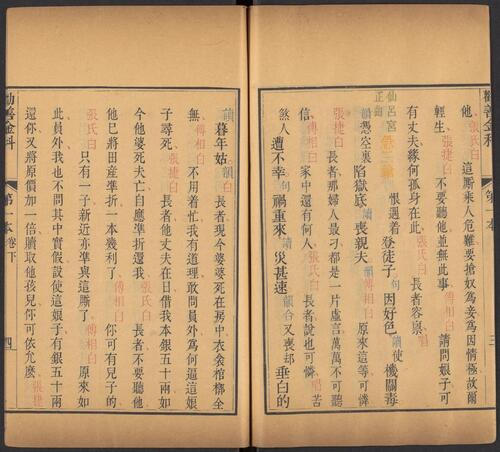 勸善金科 第一本 三
他張氏白這厮乘人危難要搶奴爲妾爲因情極故爾
輕生張捷白不要聽他並無此事傅相白請問娘子可
有丈夫緣何孤身在此張氏白長者容禀唱
仙呂宮正曲 恨遇着登徒子句因好色讀使機關毒
韻憑空裏陷獄底讀喪親夫韻傅相白原來這等可憐
張捷白長者那婦人最刁都是一片虛言萬萬不可聽
信傅相白家中還有何人張氏白長者說也可憐唱苦
煞人遭不幸句禍重來讀災甚速韻合又喪却垂白的
讀暮年姑韻白長者現今婆婆死在房中衣衾棺槨全
無傅相白不用着忙我有道理敢問員外爲何逼這娘
子尋死張捷白長者他丈夫在日借我本銀五十兩如
今他婆死夫亡自應準折還我張氏白長者不要聽他
他已將田産準折一本幾利了傅相白你可有兒子的
張氏白只有一子新近亦準與這厮了傅相白原來如
此員外我也不問其中實假設使這娘子有銀五十兩
還你又將原價加一倍贖取他孩兒你可依允麽張捷
勸善金科 第一本卷下 四